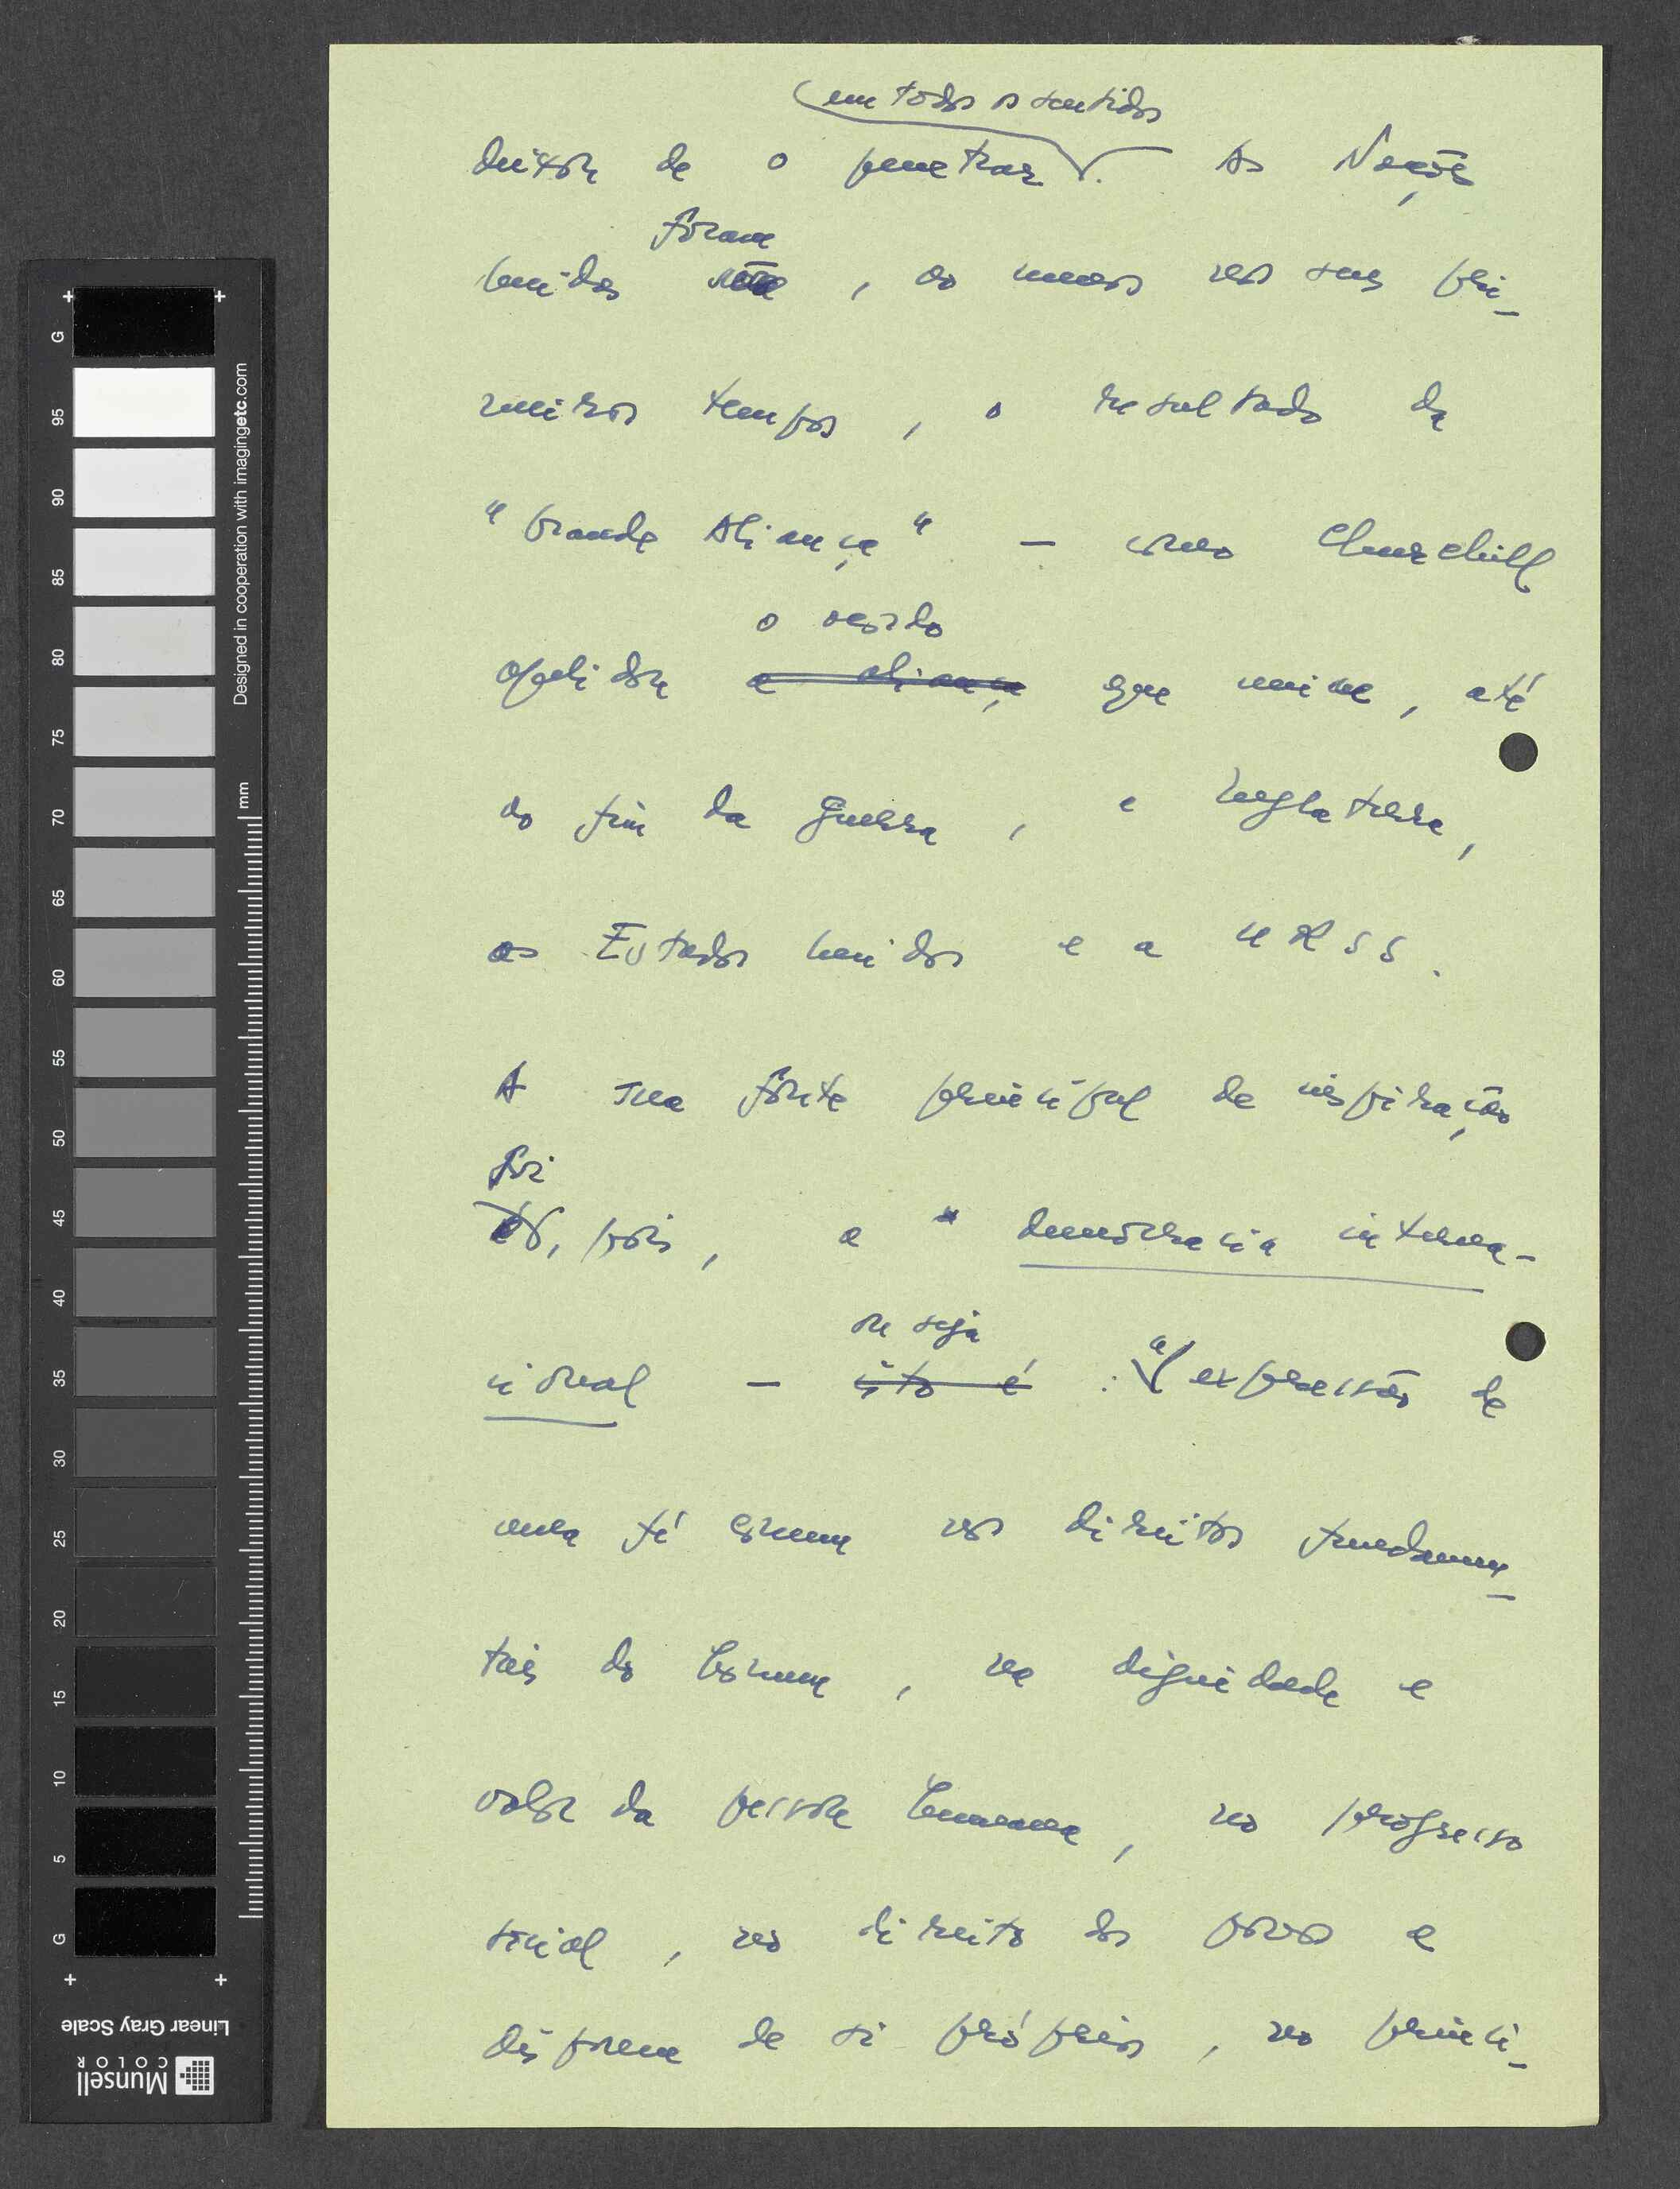 em todos os sentidos
deixou de o penetrar. As Nações
foram
Unidas, ao menos nos seus pri-
meiros tempos, o resultado da
"Grande Aliança" — como Churchill
o
apelidou a aliança que unira, até
ao fim da guerra, a Inglaterra,
os Estados Unidos e a URSS.
A sua fonte principal de inspiração
foi
pois, a democracia interna-
ou seja
cional — isto é : a expressão de
uma fé comum nos direitos fundamen-
tais do homem, na dignidade e
valor da pessoa humana, no progresso
social, no direito dos povos a
disporem de si próprios, no princí-
G
95
90
85
80
75
70
65
60
55
50
45
40
35
30
25
20
15
10
5
G
Designed in cooperation with imagingetc.com
mm
Linear Gray Scale
Munsell
COLOR